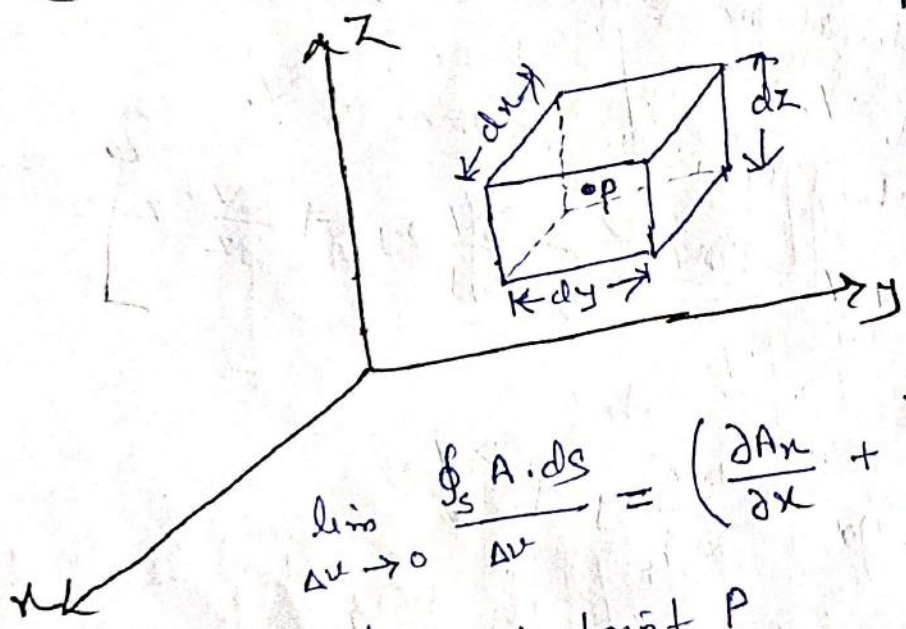 z
dx
dz
P
dy
y
lim Δv→0 ∮s A.ds / Δv = (∂Ax/∂x +
x
point P